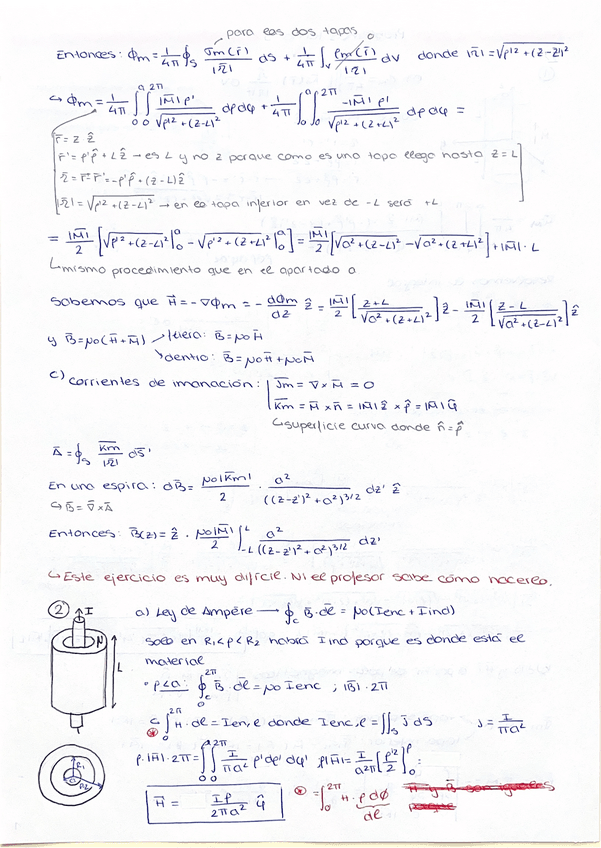 para las dos tapas
Entonces: Φm = 1/4π ∮s σm(r̄)/|r̄| ds + 1/4π ∫v ρm(r̄)/|r̄| dv donde |r̄| = √ρ'² + (z-L)²
0
↳ Φm = 1/4π ∫₀^a ∫₀^2π |M̄| ρ' / √ρ'² + (z-L)² dρ dφ + 1/4π ∫₀^a ∫₀^2π -|M̄| ρ' / √ρ'² + (z+L)² dρ dφ =
r̄ = z ẑ
r̄' = ρ'ρ̂ + L ẑ → es L y no z porque como es una tapa llega hasta z = L
r̄ = r̄ - r̄' = -ρ'ρ̂ + (z-L) ẑ
|r̄| = √ρ'² + (z-L)² → en la tapa inferior en vez de -L será +L
= |M̄|/2 [√ρ'² + (z-L)² |₀^a - √ρ'² + (z+L)² |₀^a] = |M̄|/2 [√a² + (z-L)² - √a² + (z+L)²] + |M̄| · L
↳ mismo procedimiento que en el apartado a
Sabemos que H̄ = -∇Φm = - dΦm/dz ẑ = |M̄|/2 [z+L / √a² + (z+L)²] ẑ - |M̄|/2 [z-L / √a² + (z-L)²] ẑ
y B̄ = μ0 (H̄ + M̄) → fuera: B̄ = μ0 H̄
↘ dentro: B̄ = μ0 H̄ + μ0 M̄
c) corrientes de imanación: J̄m = ∇ × M̄ = 0
K̄m = M̄ × n̄ = |M̄| ẑ × ρ̂ = |M̄| φ̂
↳ superficie curva donde n̂ = ρ̂
Ā = ∮s K̄m/|r̄| ds̄'
En una espira: dB̄ = μ0 |K̄m|/2 · a² / ((z-z')² + a²)^3/2 dz' ẑ
↳ B̄ = ∇̄ × Ā
Entonces: B̄(z) = ẑ · μ0|M̄|/2 ∫₋L^L a² / ((z-z')² + a²)^3/2 dz'
↳ Este ejercicio es muy difícil. Ni el profesor sabe cómo hacerlo.
② I a) Ley de Ampère → ∮c B̄ · dl̄ = μ0 (Ienc + Iind)
N
L
solo en R₁ < ρ < R₂ habrá Iind porque es donde está el
material
• ρ < a: ∮c B̄ · dl̄ = μ0 Ienc ; |B̄| · 2π
↳ ∫₀^2π H̄ · dl = Ien,l donde Ienc,l = ∬s J̄ ds J = I/πa²
ρ · |H̄| · 2π = ∫₀^a ∫₀^2π I/πa² ρ' dρ' dφ' ρ|H̄| = I/a²π [ρ'²/2]₀^ρ :
R₁
a
R₂
H̄ = Iρ/2πa² φ̂
⊛ = ∫₀^2π H · ρ dφ
dl
H y B son iguales
porque